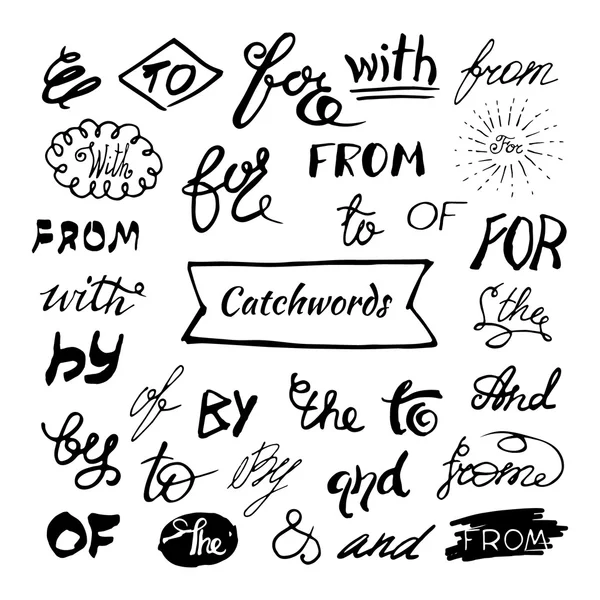 & TO for with from
With for FROM For
to OF
FROM FOR
with Catchwords the
by
of BY the to And
by to By and from
OF The & and FROM